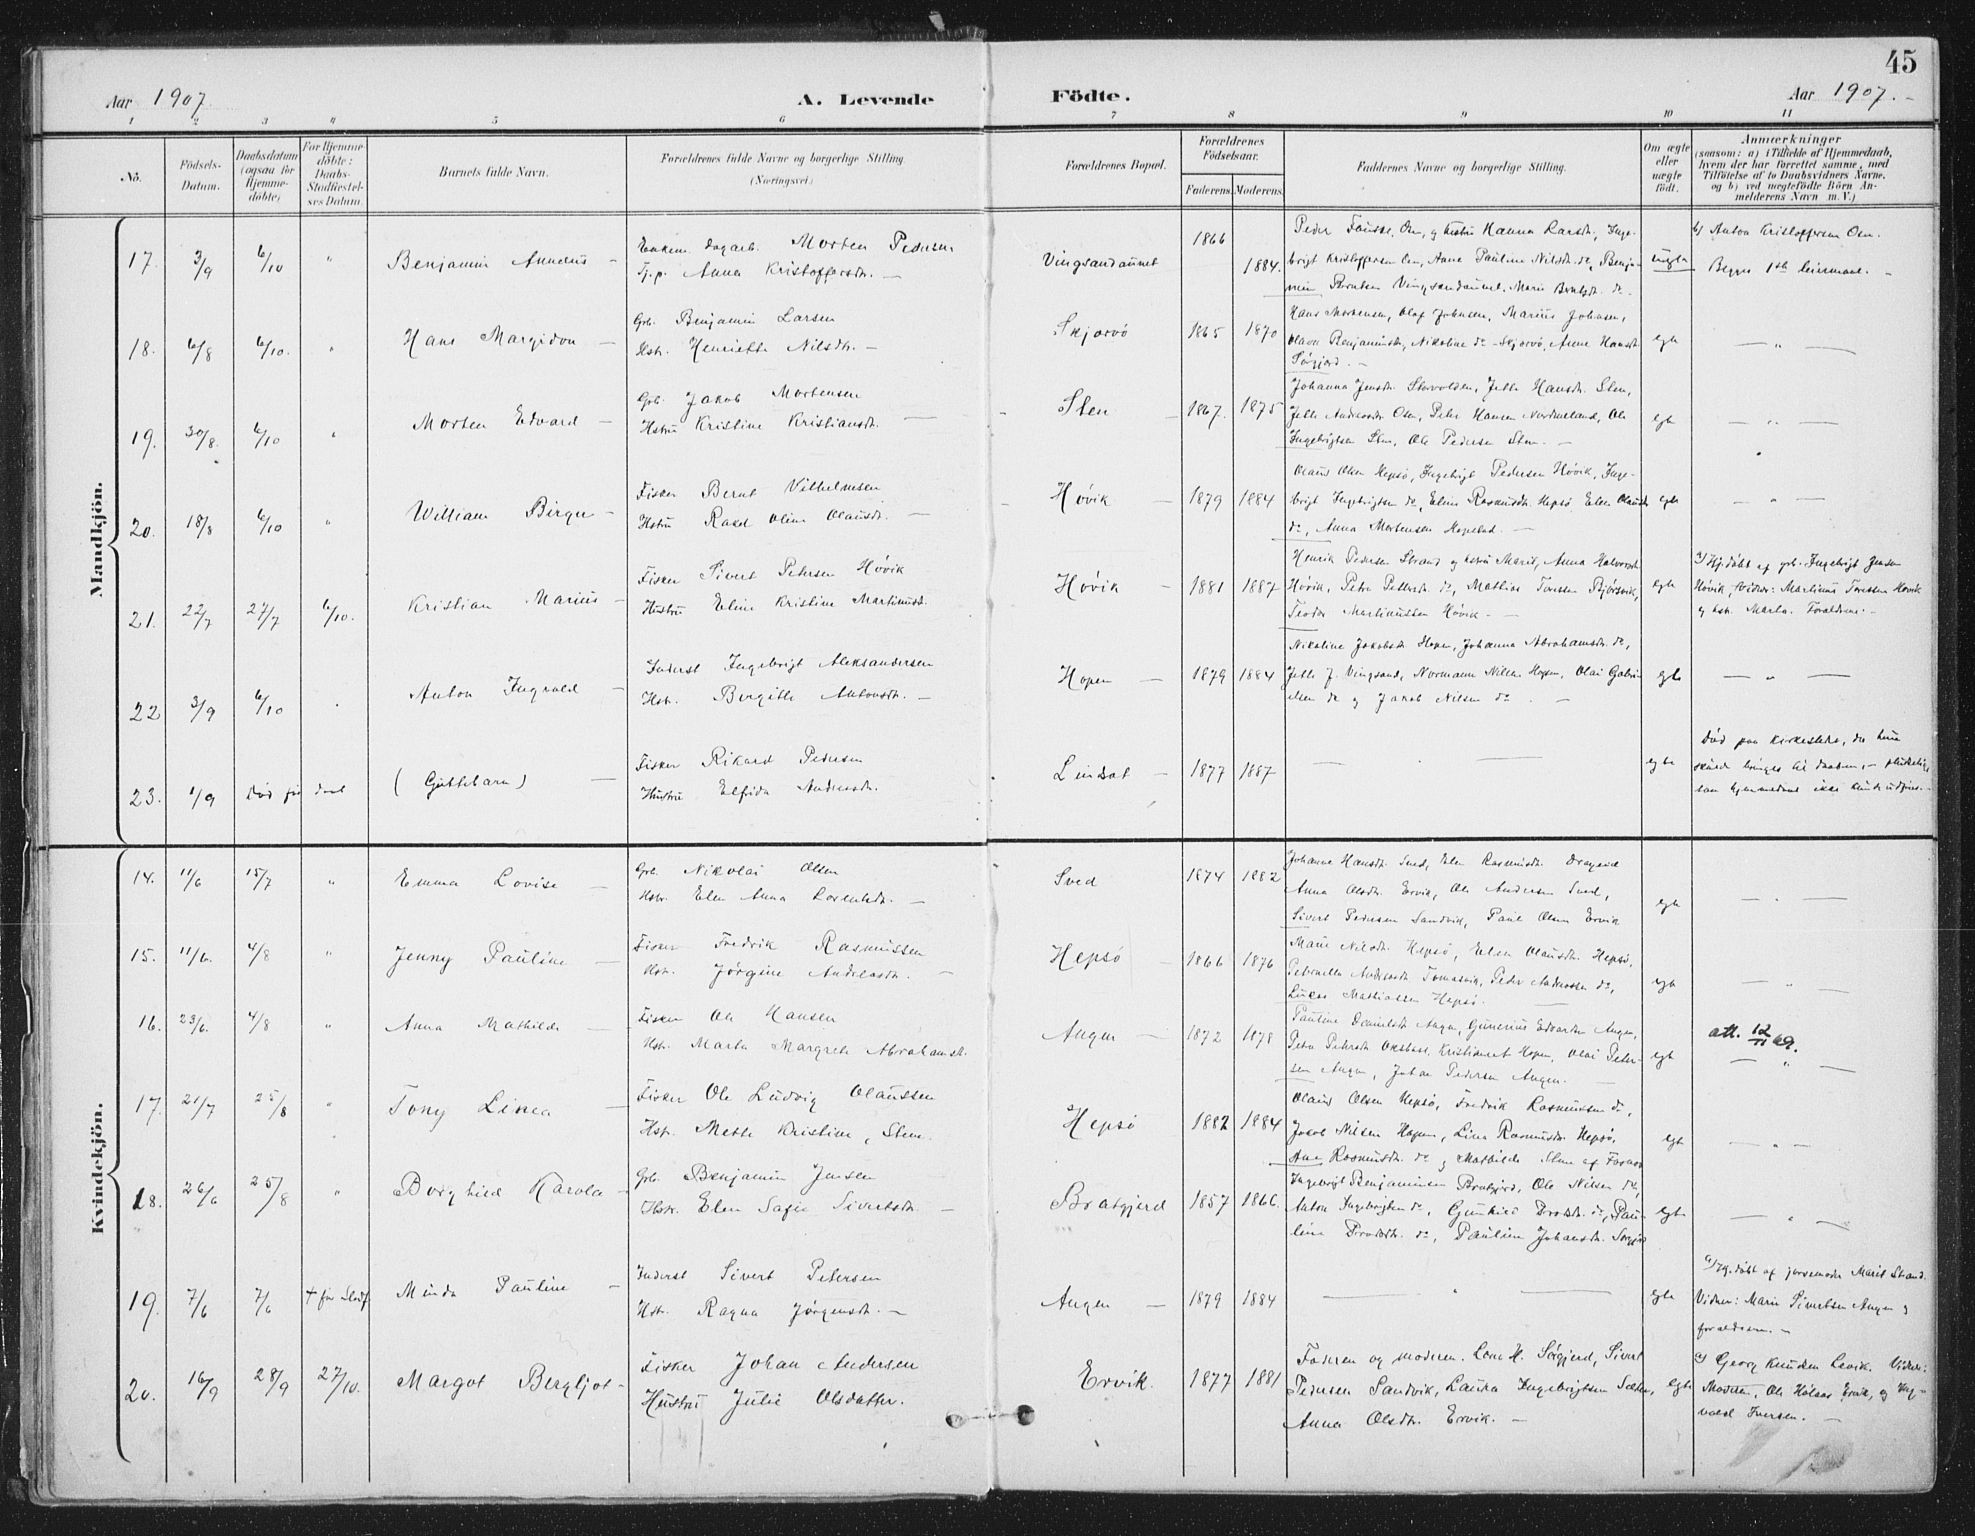 45
Aar 1907. A. Levende Födte. Aar 1907.
1 2 3 4 5 6 7 8 9 10 11
No. Födsels-Datum. Daabsdatum (ogsaa for Hjemme-döbte) For Hjemme-döbte: Daabs-Stadfæstel-ses Datum. Barnets fulde Navn. Forældrenes fulde Navne og borgerlige Stilling. (Næringsvei) Forældrenes Bopæl. Forældrenes Födselsaar. Faderens. Moderens. Faddernes Navne og borgerlige Stilling. Om ægte eller uægte födt.
Anmærkninger
(saasom: a) i Tilfælde af Hjemmedaab,
hvem der har forrettet samme, med
Tilföielse af to Daabsvidners Navne.
og b) ved uægtefödte Börn An-
melderens Navn m. V.)
Mandkjön.
17. 3/9 6/10 " Benjamin Anneus
Enkem. dagarb. Morten Pedersen
Tj.p. Anna Kristoffersdtr. —
Vingsandaunet 1866 1884.
Peder Osen, og hustru Hanna Larsdtr, Inge-
brigt Kristoffersen Osen, Anne Pauline Nilsdtr. do, Benja-
min Berntsen Vingsandaunet, Marie Berntsdtr. do.
uægte
b) Anton Kristoffersen Osen.
Begges 1ste leiermaal. —
18. 6/8 6/10. " Hans Margidon —
Grb. Benjamin Larsen
Hstr. Henriette Nilsdtr. —
Skjærvö 1865 1870
Hans Mortensen, Olaf Johnsen, Marius Johnsen,
Olava Benjaminsdtr, Nikoline do - Skjervö, Anne Hansdtr
Sörgjerd. —
egte — " —
19. 30/8. 6/10 " Morten Edvard —
Grb. Jakob Mortensen
Hstru Kristine Kristiansdtr. —
Sten 1867. 1875
Johanna Jensdtr. Storvolden, Jelle Hansdtr. Sten,
Jelle Andersdtr Osen, Peter Hansen Nordmeland, Ole
Ingebrigtsen Sten, Ole Pedersen Sten. —
egte — " —
20. 18/8 6/10 " William Birger —
Fisker Bernt Vilhelmsen
Hstru Rakel Oline Olausdtr. —
Hóvik — 1879 1884
Olaus Olsen Hepsö, Ingebrigt Pedersen Hóvik, Inge-
brigt Ingebrigtsen do, Eline Rasmusdtr. Hepsö, Elen Olausdtr
do, Anna Mortensen Hopstad. —
egte — " —
21. 22/7 27/7 6/10. Kristian Marius —
Fisker Sivert Petersen Hóvik
Hustru Eline Kristine Martinusdt.
Hóvik — 1881 1887
Henrik Pedersen Strand og hstru Marit, Anna Halvorsdtr
Hóvik, Petra Pettersdtr. do, Mathias Tønsen Bjórsvik,
Teodor Martinussen Hóvik. —
egte
a) Hj. döbt af grb. Ingebrigt Jensen
Hóvik, Vidner: Martinus Hóvik
og hstr. Marta. Foreldrene. —
22 3/9 6/10 Anton Ingvald —
Inderst Ingebrigt Aleksandersen
Hstr. Bergitte Antonsdtr. —
Hopen — 1879 1884
Nikoline Jakobsdtr Hopen, Johanna Abrahamsdtr. do,
Jelle J. Vingsand, Normann Nilsen Hopen, Olai Gabri-
elsen do og Jakob Nilsen do. —
egte — " —
23. 1/9 Död för daab (Guttebarn) —
Fisker Rikard Pedersen
Hustru Elfrida Andersdtr.
Lindset — 1877 1887
— " —
egte
Död paa kirkestedet, da hun
skulde bringes til daaben, — pludselig,
saa hjemmedaab ikke kunde udföres. —
Kvindekjön.
14. 11/6 15/7 " Emma Lovise —
Grb. Nikolai Olsen
Hstr. Elen Anna Lorentsdtr. —
Sved 1874 1882
Johanne Hansdtr. Sved, Elen Rasmusdtr. Drageid
Anna Olsdtr. Ervik, Ole Andersen Sved,
Sivert Pedersen Sandvik, Paul Olsen Ervik
egte — " —
15. 11/6. 4/8 " Jenny Pauline —
Fisker Fredrik Rasmussen
Hstr. Jörgine Andreasdtr. —
Hepsö — 1866 1876
Marie Nilsdtr. Hepsö, Elen Olausdtr. Hepsö,
Petronelle Andersdtr Tomasvik, Peder Andreassen do,
Lukas Mathiassen Hepsö. —
egte — " —
16. 23/6. 4/8 " Anna Mathilde —
Fisker Ole Hansen
Hstr. Marta Margrete Abrahamsdt.
Angen — 1872 1878
Pauline Danielsdtr Angen, Gunerius Edvardsen Angen,
Petra Petersdtr , Kristianet Hopen, Olai Peter-
sen Angen, Johan Pedersen Angen. —
egte
att. 12/11 69.
— " —
17. 21/7 25/8 " Tony Linea —
Fisker Ole Ludvig Olaussen
Hstr. Mette Kristine, Stene.
Hepsö 1882 1884
Olaus Olsen Hepsö, Fredrik Rasmussen do,
Jakob Nilsen Hopen, Lina Rasmusdtr. Hepsö,
Ane Rasmusdtr. do og Mathilde Stene af Fosnes
egte — " —
18. 26/6 25/8 " Borghild Karola —
Grb. Benjamin Jensen
Hstr. Elen Sofie Sivertsdtr. —
Bratgjerd 1857 1866.
Ingebrigt Benjaminsen Bratgjerd, Ole Nilsen do,
Anton Ingebrigtsen do, Gunhild do, Pau-
line do, Pauline Johansdtr. Sörgjerd
egte — " —
19. 7/6 7/6 † för Stadf. Minda Pauline —
Inderst Sivert Petersen
Hstr. Ragna Jörgensdtr. —
Angen — 1879 1884
— " —
egte
a) Hj. döbt af jordmoder Marit Strand.
Vidner: Marie Sivertsen Angen og
forældrene. —
20. 16/9 28/9 27/10. Margot Bergljot —
Fisker Johan Andersen
Hustru Julie Olsdatter.
Ervik. 1877 1881
Faderen og moderen. Lene M. Sörgjerd, Sivert
Pedersen Sandvik, Laura Ingebrigtsen Sæther,
Anna Olsdtr. Ervik. —
egte
a) Georg Knudsen Levik. Vidner:
Moderen, Ole Ervik, og Ing-
vald Iversen. —